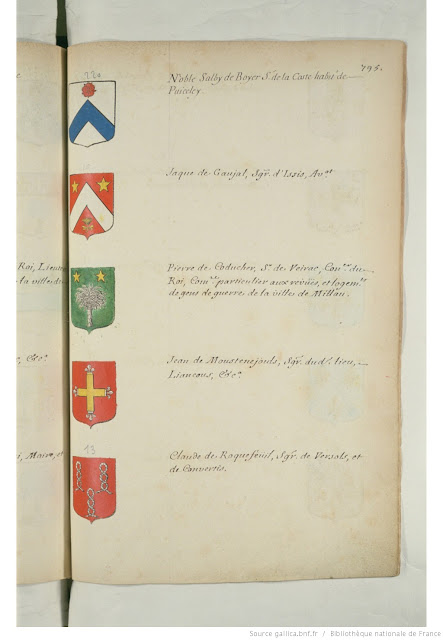 795.
Noble Salby de Boyer Sr. de la Coste habt. de
Puiceley.
Jaque de Gaujal, Sgr. d'Issis, Avt.
Roi, Lieute
la ville du
Pierre de Coducher, Sr. de Veirac, Conr. du
Roi, Comre. particulier aux revües, et logemt.
de gens de guerre, de la ville de Millau.
, &c.
Jean de Moustenejouls, Sgr. dudt. lieu,
Liancous, &c.
13
i, Maire, et
Claude de Roquefeuil, Sgr. de Versols, et
de Couvertis.
Source gallica.bnf.fr / Bibliothèque nationale de France